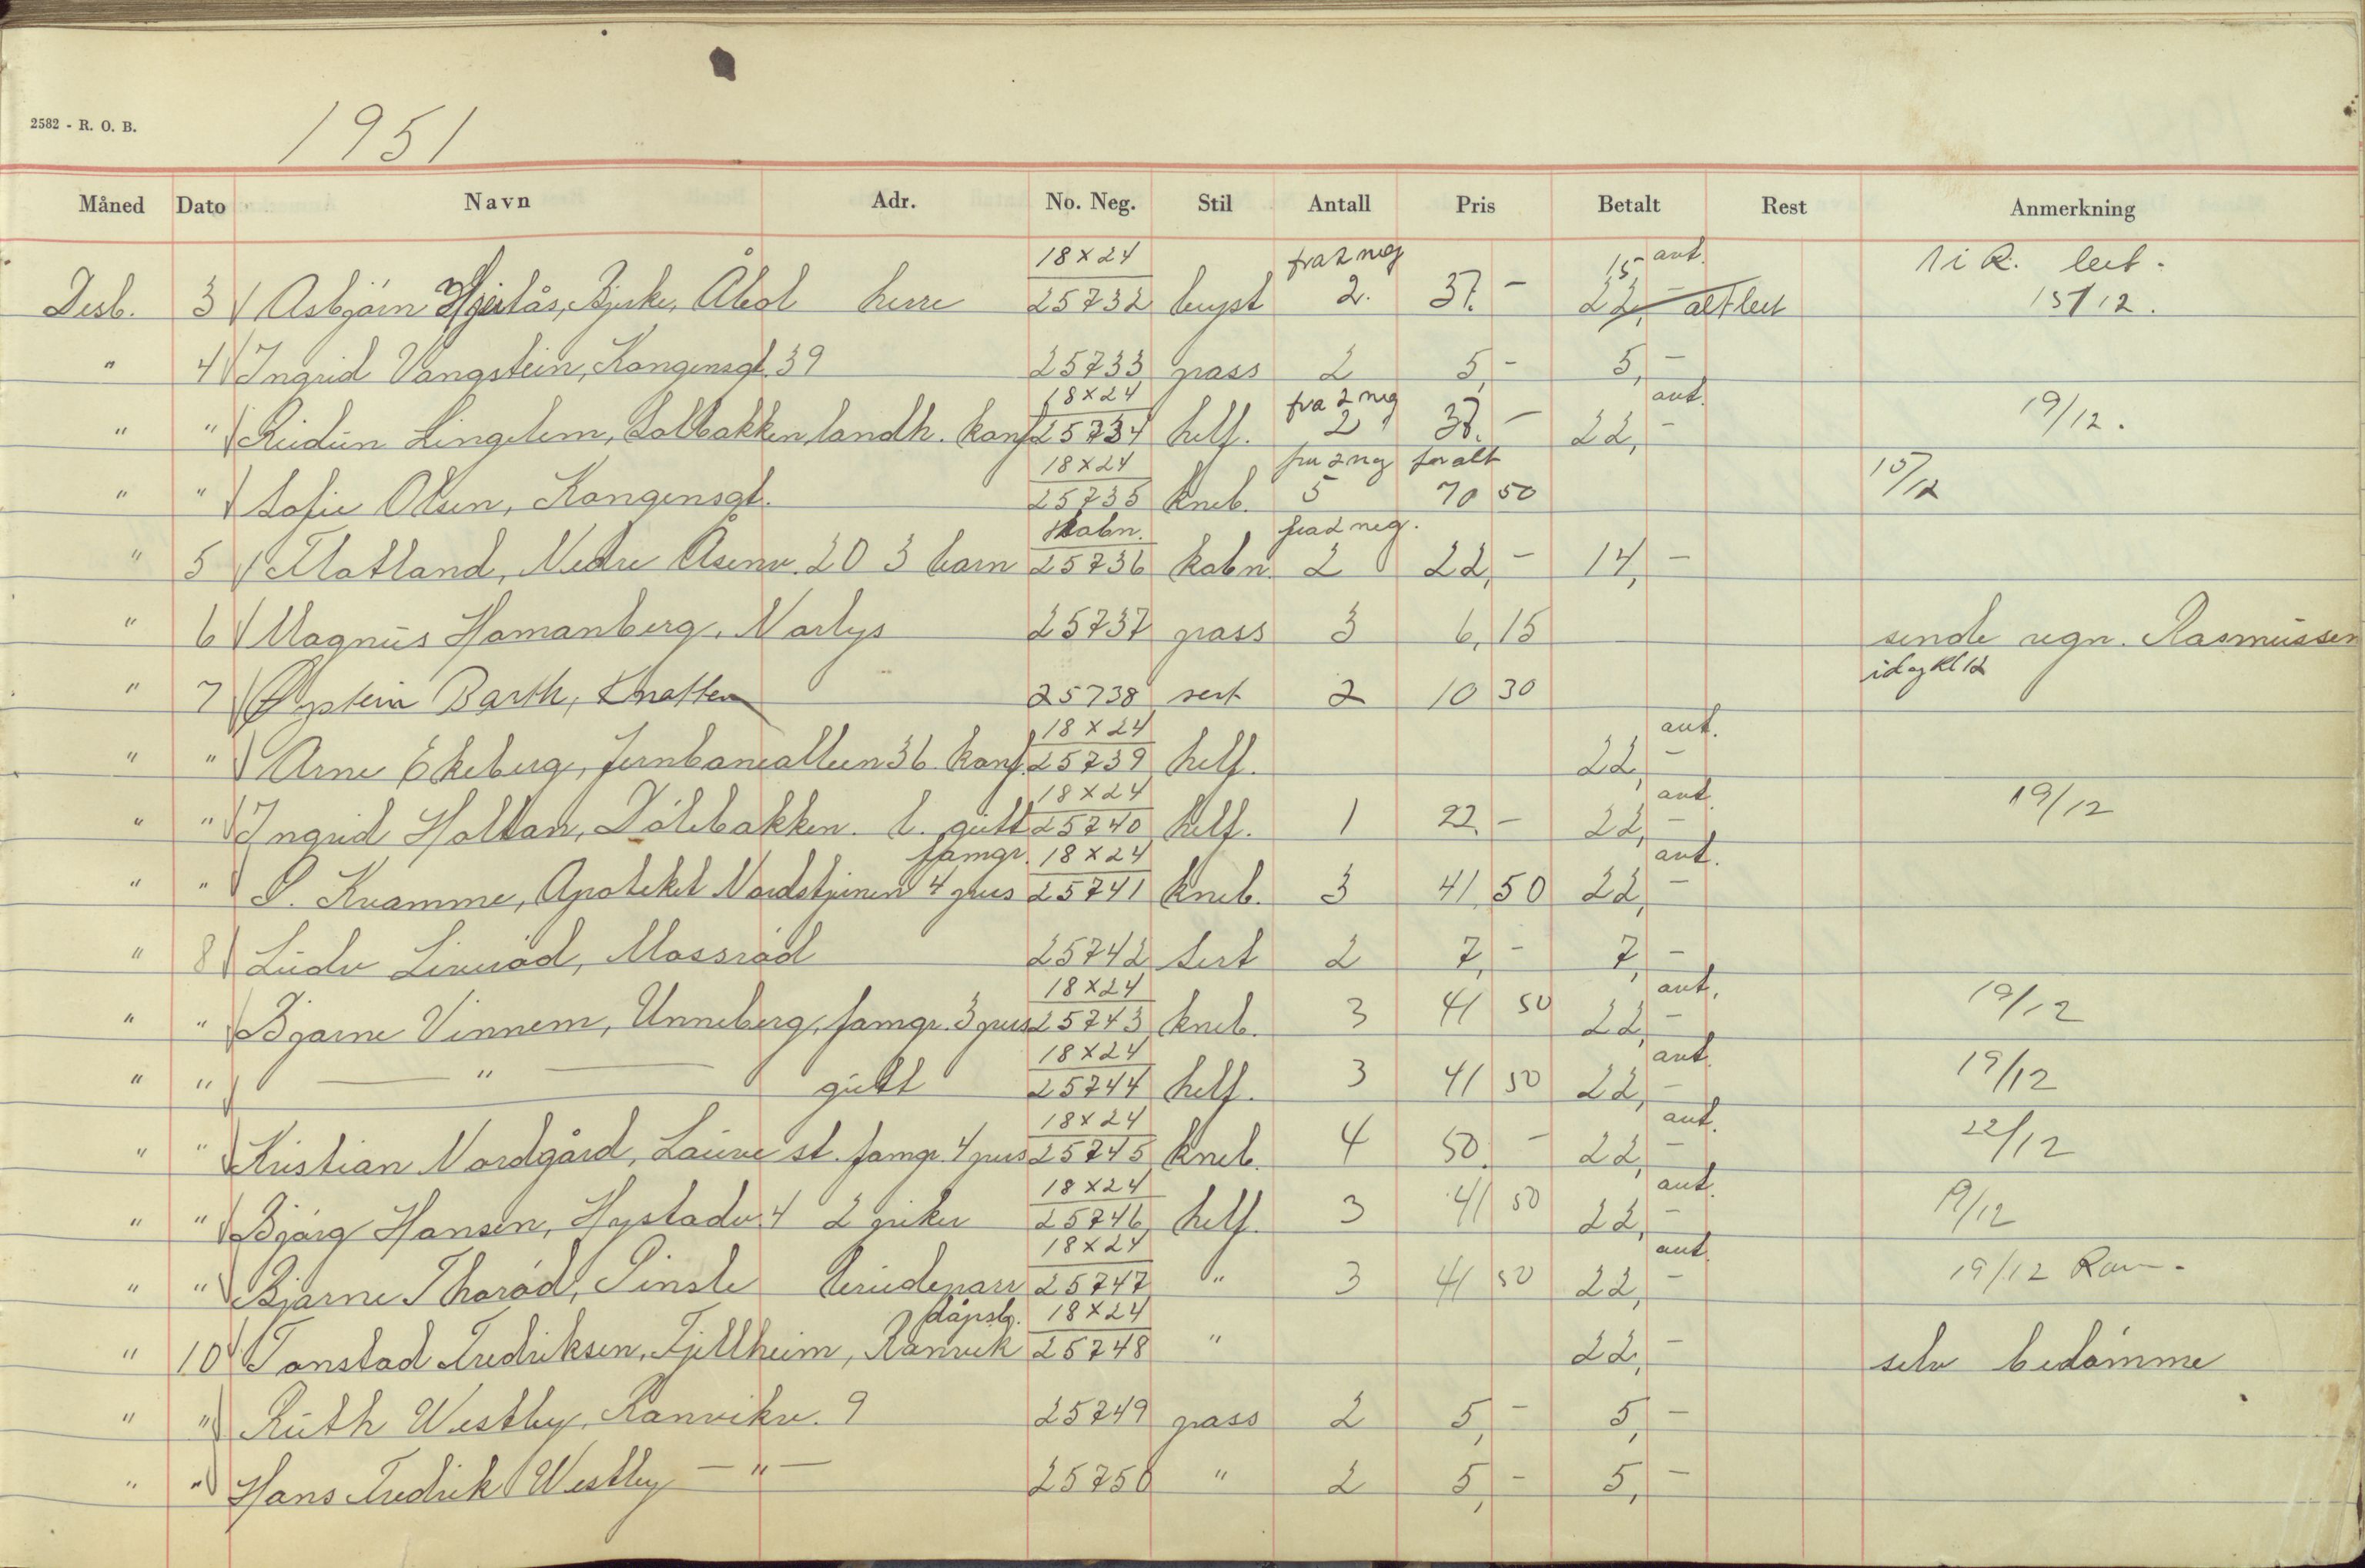 2582 - R. O. B.
1951
Måned Dato Navn Adr. No. Neg. Stil Antall Pris Betalt Rest Anmerkning
18x24 fra 2 neg 15,- ant. 1 i R. lev.
Desb. 3 Asbjørn Hjertås, Bjerke, Åbol herre 25732 bryst 2. 37.- 22,- alt lev 15/12.
" 4 Ingrid Vangstein, Kongensgt. 39 25733 pass 2 5,- 5,-
18x24 fra 2 neg ant.
" " Reidun Lingelem, Solbakken, landh. konf 25734 helf. 2 37.- 22,- 19/12.
18x24 fra 2 neg for alt
" " Sofie Olsen, Kongensgt. 25735 kneb. 5 70 50 15/12
kabn. fra 2 neg.
" 5 Flatland, Nedre Åsenv. 20 3 barn 25736 kabn. 2 22,- 14,-
" 6 Magnus Hamanberg, Narlys 25737 pass 3 6,15 sende regn. Rasmussen
" 7 Øystein Barth, Knatten 25738 sert 2 10 30 idag kl 12
18x24 ant.
" " Arne Ekeberg, Jernbanealleen 36 konf. 25739 helf. 22,-
18x24 ant.
" " Ingrid Holtan, Dölebakken. l. gutt 25740 helf. 1 22.- 22,- 19/12
famgr. 18x24 ant.
" " S. Kvamme, Apoteket Nordstjernen 4 pers 25741 kneb. 3 41 50 22,-
" 8 Ludv Liveröd, Massröd 25742 Sert 2 7,- 7,-
18x24 ant.
" " Bjarne Vinnem, Unneberg, famgr. 3 pers 25743 kneb. 3 41 50 22,- 19/12
18x24 ant.
" " — " — gutt 25744 helf. 3 41 50 22,- 19/12
18x24 ant.
" " Kristian Nordgård, Lauve st. famgr. 4 pers 25745 kneb. 4 50.- 22,- 22/12
18x24 ant.
" " Bjørg Hansen, Hystadv. 4 2 piker 25746 helf. 3 41 50 22,- 19/12
18x24 ant.
" " Bjarne Thoröd, Pinsle brudepar 25747 " 3 41 50 22,- 19/12
dåpsb. 18x24
" 10 Tonstad Fredriksen, Fjellheim, Ranvik 25748 " 22,- selv bedömme
" " Ruth Westby, Ranvikv. 9 25749 pass 2 5,- 5,-
" " Hans Fredrik Westby — " — 25750 " 2 5,- 5,-